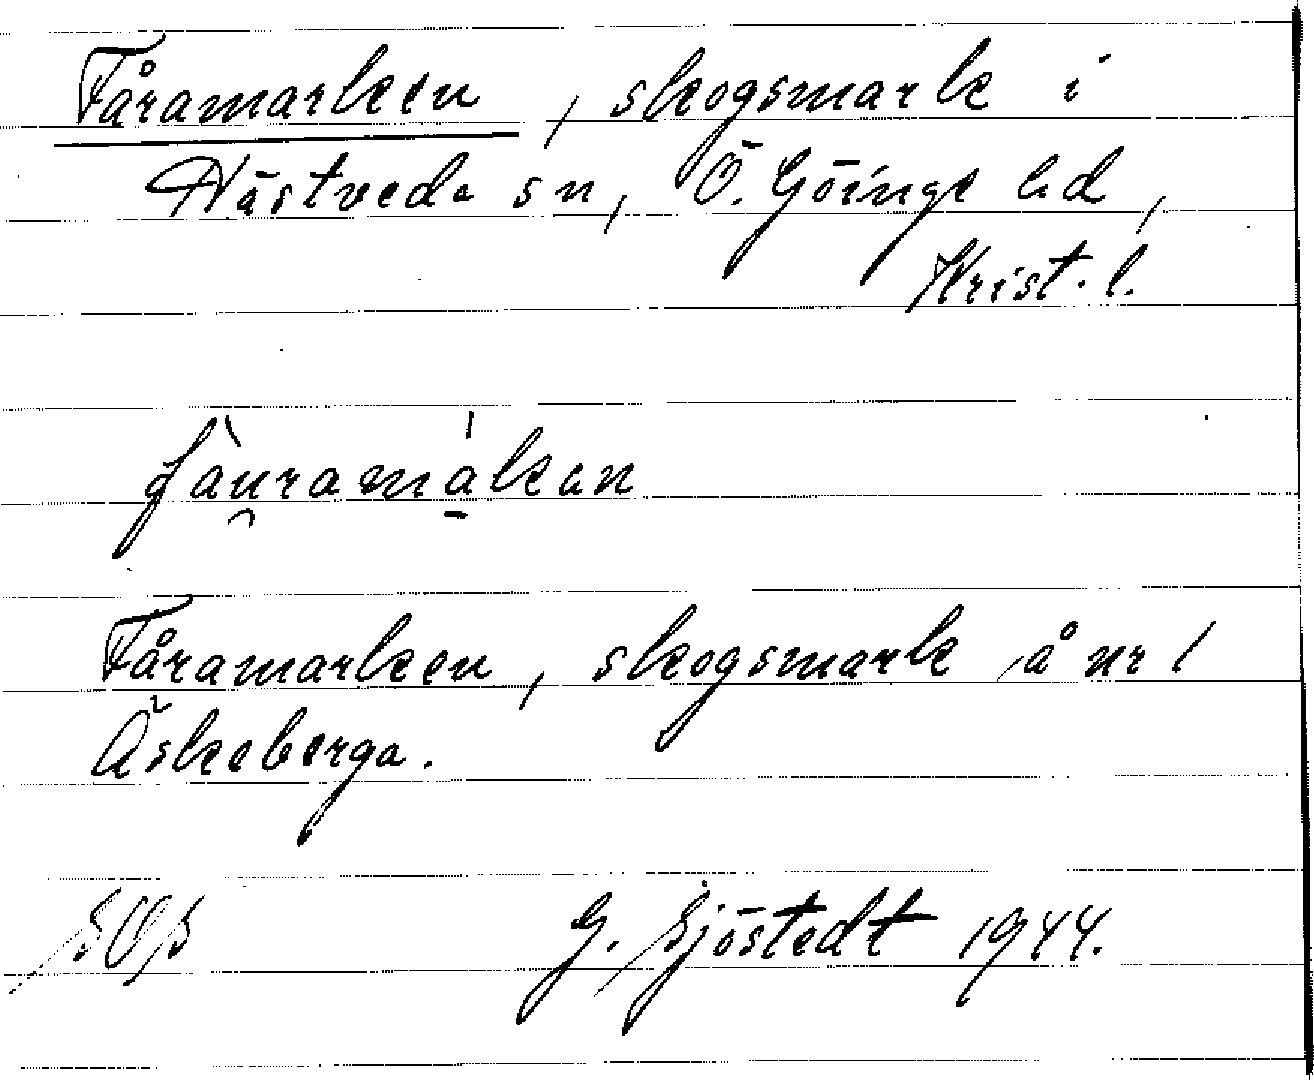 Fåramarken, skogsmark i
Hästveda sn, Ö. Göinge hd,
Krist. l.
fàu̯ramáḻkan
Fåramarken, skogsmark å nr 1
Äskeberga.
G. Sjöstedt 1944.